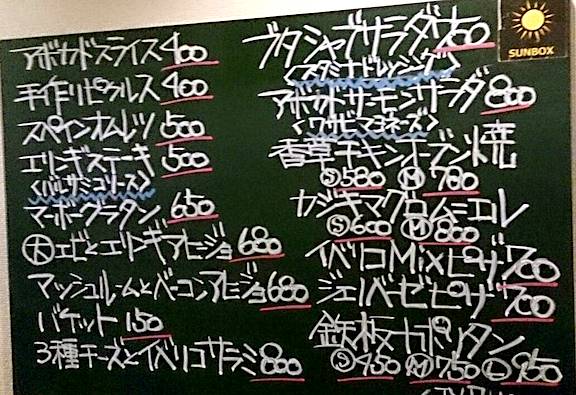 アボカドスライス 400
手作りピクルス 400
スペインオムレツ 500
エリンギステーキ 500
<バルサミコソース>
マーボーグラタン 650
大 エビとエリンギアヒジョ 680
マッシュルームとベーコンアヒジョ 680
バケット 150
3種チーズとイベリコサラミ 800
ブタシャブサラダ 750
アボカドサーモンサラダ 800
<ワサビマヨネーズ>
香草チキンオーブン焼
S 580 M 780
カジキマグロムニエル
S 600 M 800
イベリコMixピザ 700
ジェノベーゼピザ 700
鉄板ナポリタン
S 450 M 750 L 950
SUNBOX